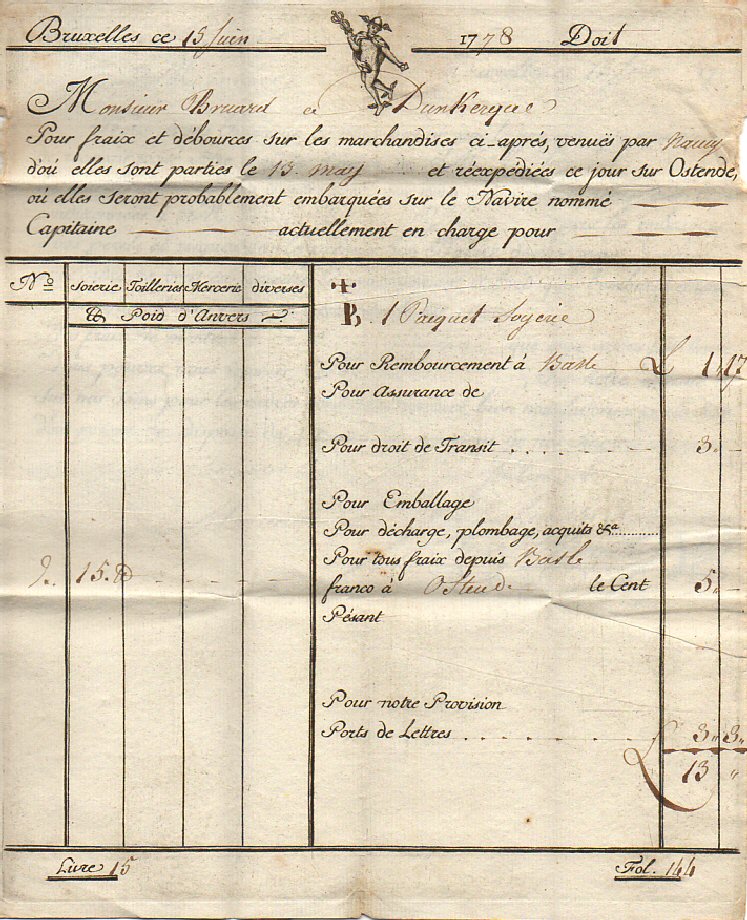 Bruxelles ce 15 Juin 1778 Doit
Monsieur Bruard a Dunkerque
Pour fraix et débources sur les marchandises ci-aprés, venuës par Nancy
d'où elles sont parties le 13 may et réexpédiées ce jour sur Ostende,
où elles seront probablement embarquées sur le Navire nommé
Capitaine actuellement en charge pour
No. Soierie Toilleries Mercerie diverses
℔ Poid d'Anvers
B. 1 Pacquet Soyerie
Pour Remboursement à Basle L 1,, 17
Pour Assurance de
Pour droit de Transit . . . . . 3,,
Pour Emballage
Pour décharge, plombage, acquits &ca
Pour tous fraix depuis Basle
15. ℔ franco à Ostende le Cent 5,,
Pésant
Pour notre Provision
Ports de Lettres . . . . . . . . 3,, 3,,
L 13 ,,
Livre 15 Fol. 144